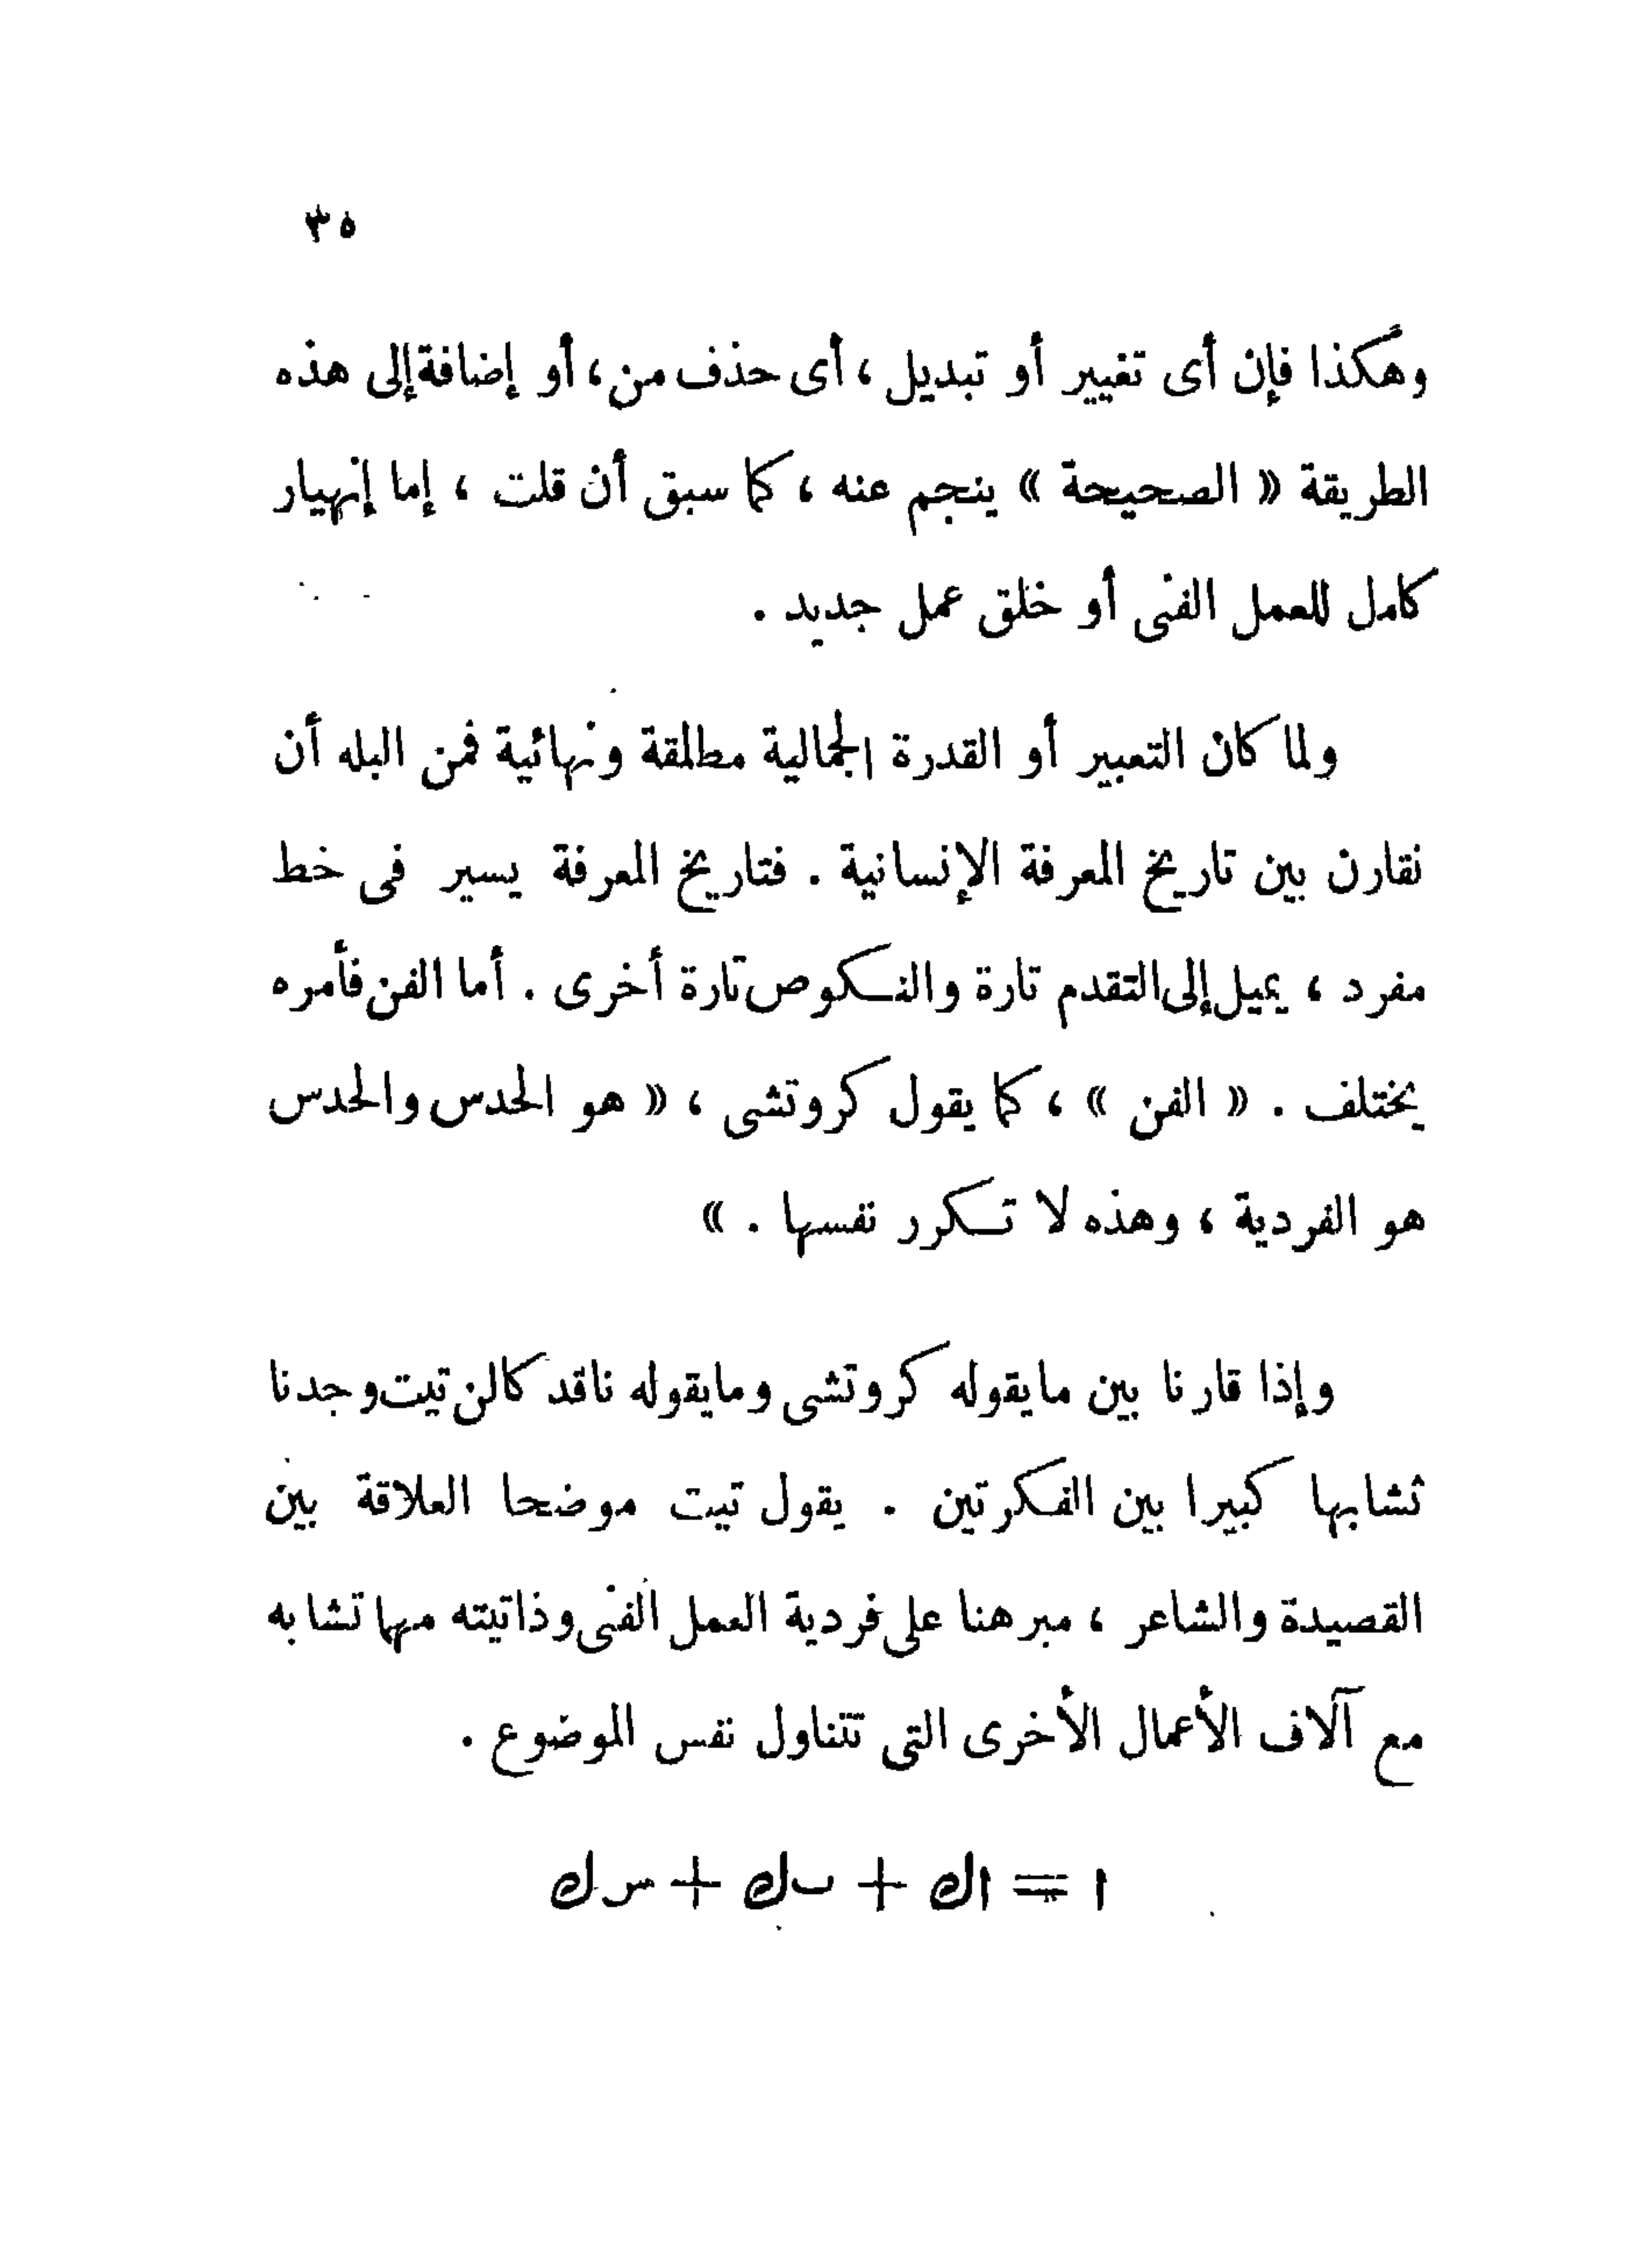 ٣٥
وهكذا فإن أى تغيير أو تبديل ، أى حذف من ، أو إضافة إلى هذه
الطريقة « الصحيحة » ينجم عنه ، كما سبق أن قلت ، إما إنهيار
كامل للعمل الفنى أو خلق عمل جديد .
ولما كان التعبير أو القدرة الجمالية مطلقة ونهائية فمن البله أن
نقارن بين تاريخ المعرفة الإنسانية . فتاريخ المعرفة يسير فى خط
مفرد ، يميل إلى التقدم تارة والنكوص تارة أخرى . أما الفن فأمره
يختلف . « الفن » ، كما يقول كروتشى ، « هو الحدس والحدس
هو الفردية ، وهذه لا تكرر نفسها . »
وإذا قارنا بين مايقوله كروتشى ومايقوله ناقد كالن تيت وجدنا
تشابها كبيرا بين الفكرتين . يقول تيت موضحا العلاقة بين
القصيدة والشاعر ، مبرهنا على فردية العمل الفنى وذاتيته مهما تشابه
مع آلاف الأعمال الأخرى التى تتناول نفس الموضوع .
ا = اك + ب‍ك + س‍ك